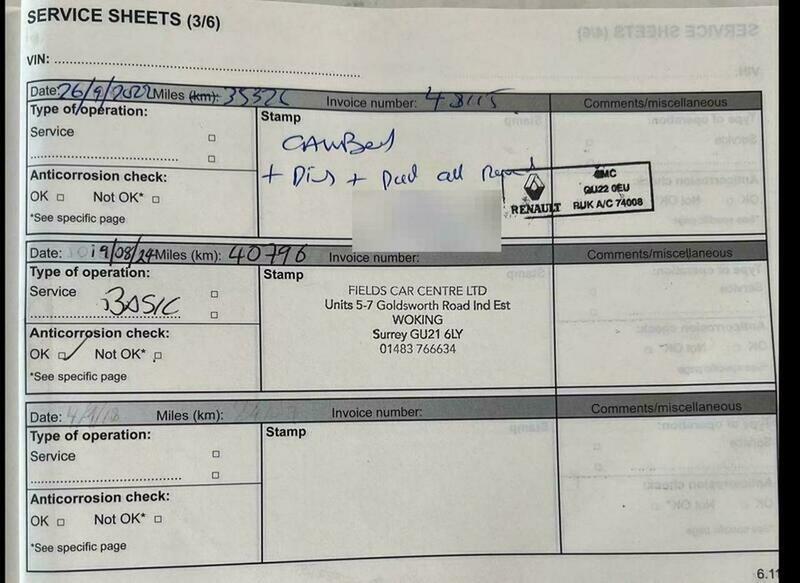 SERVICE SHEETS (3/6)
VIN:
Date: 26/9/2022 Miles (km): 35326 Invoice number: 48115 Comments/miscellaneous
Type of operation:
Stamp
Service
CAMBelt
+ Disc + Pad all
Anticorrosion check:
OK Not OK*
*See specific page
RENAULT
GU22 0EU
RUK A/C 74008
Date: 19/08/24 Miles (km): 40796 Invoice number: Comments/miscellaneous
Type of operation:
Stamp
Service
BASIC
FIELDS CAR CENTRE LTD
Units 5-7 Goldsworth Road Ind Est
WOKING
Surrey GU21 6LY
01483 766634
Anticorrosion check:
OK Not OK*
*See specific page
Date: 4/1/18 Miles (km): Invoice number: Comments/miscellaneous
Type of operation:
Stamp
Service
Anticorrosion check:
OK Not OK*
*See specific page
6.11